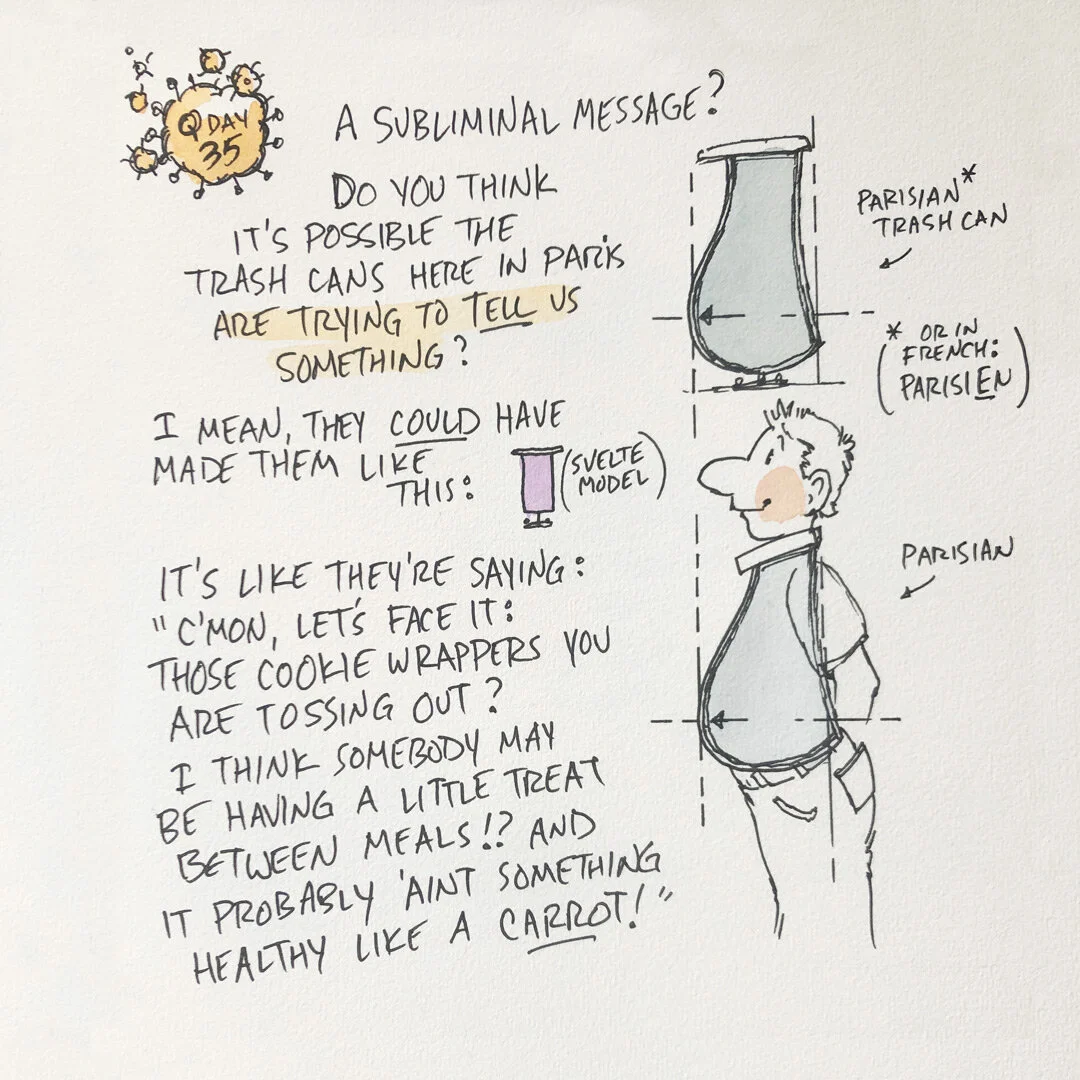 Q DAY
35
A SUBLIMINAL MESSAGE?
DO YOU THINK
IT'S POSSIBLE THE
TRASH CANS HERE IN PARIS
ARE TRYING TO TELL US
SOMETHING?
I MEAN, THEY COULD HAVE
MADE THEM LIKE
THIS:
(SVELTE
MODEL)
IT'S LIKE THEY'RE SAYING:
"C'MON, LET'S FACE IT:
THOSE COOKIE WRAPPERS YOU
ARE TOSSING OUT?
I THINK SOMEBODY MAY
BE HAVING A LITTLE TREAT
BETWEEN MEALS!? AND
IT PROBABLY 'AINT SOMETHING
HEALTHY LIKE A CARROT!"
PARISIAN*
TRASH CAN
(* OR IN
FRENCH:
PARISIEN)
PARISIAN